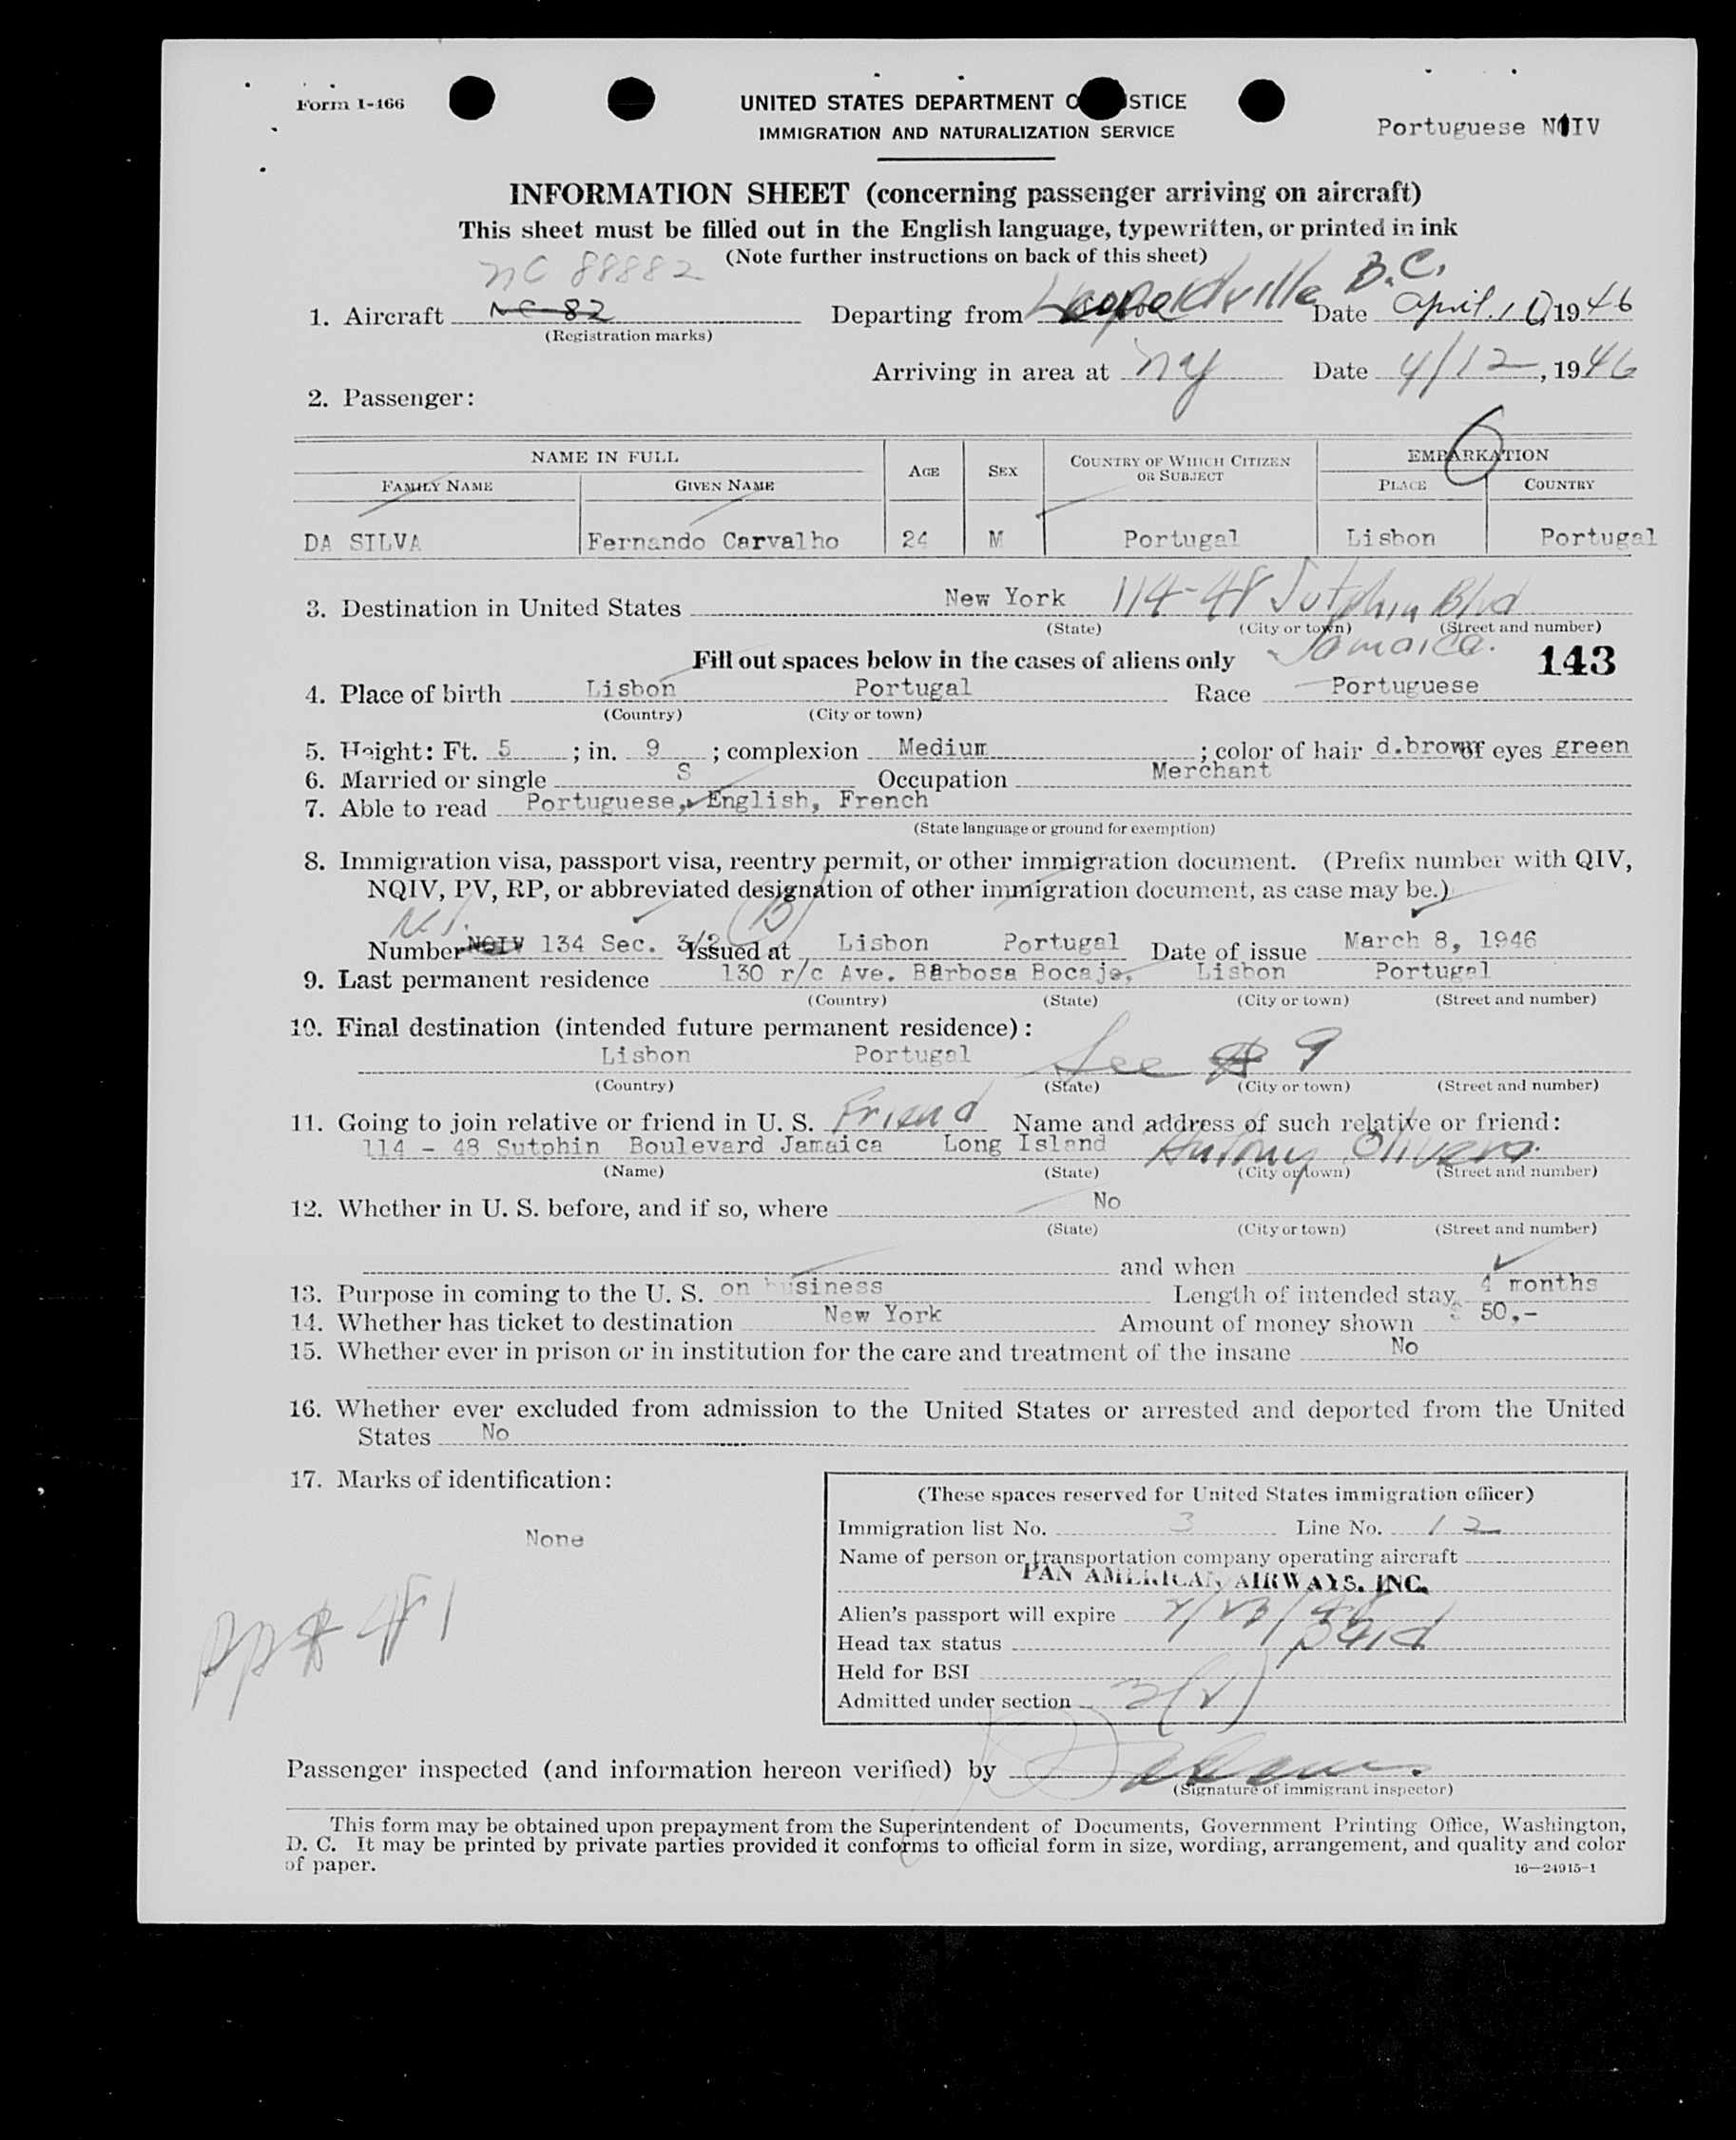 Form I-466
UNITED STATES DEPARTMENT O STICE
IMMIGRATION AND NATURALIZATION SERVICE
Portuguese NIV
INFORMATION SHEET (concerning passenger arriving on aircraft)
This sheet must be filled out in the English language, typewritten, or printed in ink
(Note further instructions on back of this sheet)
NC 88882
1. Aircraft NC 82 Departing from Leopoldville B.C. Date April. 10, 1946
(Registration marks)
Arriving in area at NY Date 4/12, 1946
2. Passenger:
NAME IN FULL AGE SEX COUNTRY OF WHICH CITIZEN OR SUBJECT EMBARKATION
FAMILY NAME GIVEN NAME PLACE COUNTRY
6
DA SILVA Fernando Carvalho 24 M Portugal Lisbon Portugal
3. Destination in United States New York 114-48 Sutphin Blvd
(State) (City or town) (Street and number)
Jamaica.
Fill out spaces below in the cases of aliens only 143
4. Place of birth Lisbon Portugal Race Portuguese
(Country) (City or town)
5. Height: Ft. 5 ; in. 9 ; complexion Medium ; color of hair d.brown of eyes green
6. Married or single S Occupation Merchant
7. Able to read Portuguese, English, French
(State language or ground for exemption)
8. Immigration visa, passport visa, reentry permit, or other immigration document. (Prefix number with QIV,
NQIV, PV, RP, or abbreviated designation of other immigration document, as case may be.)
Number NQIV 134 Sec. 3/2 (B) Issued at Lisbon Portugal Date of issue March 8, 1946
9. Last permanent residence 130 r/c Ave. Barbosa Bocaje, Lisbon Portugal
(Country) (State) (City or town) (Street and number)
10. Final destination (intended future permanent residence):
Lisbon Portugal See 9
(Country) (State) (City or town) (Street and number)
11. Going to join relative or friend in U. S. Friend Name and address of such relative or friend:
114 - 48 Sutphin Boulevard Jamaica Long Island Antony Olivera.
(Name) (State) (City or town) (Street and number)
12. Whether in U. S. before, and if so, where No
(State) (City or town) (Street and number)
and when
13. Purpose in coming to the U. S. on business Length of intended stay 4 months
14. Whether has ticket to destination New York Amount of money shown $ 50,-
15. Whether ever in prison or in institution for the care and treatment of the insane No
16. Whether ever excluded from admission to the United States or arrested and deported from the United
States No
17. Marks of identification:
None
(These spaces reserved for United States immigration officer)
Immigration list No. 3 Line No. 12
Name of person or transportation company operating aircraft
PAN AMERICAN AIRWAYS, INC.
Alien's passport will expire
Head tax status Paid
Held for BSI
Admitted under section 3(2)
Passenger inspected (and information hereon verified) by
(Signature of immigrant inspector)
This form may be obtained upon prepayment from the Superintendent of Documents, Government Printing Office, Washington,
D. C. It may be printed by private parties provided it conforms to official form in size, wording, arrangement, and quality and color
of paper.
16—24915-1